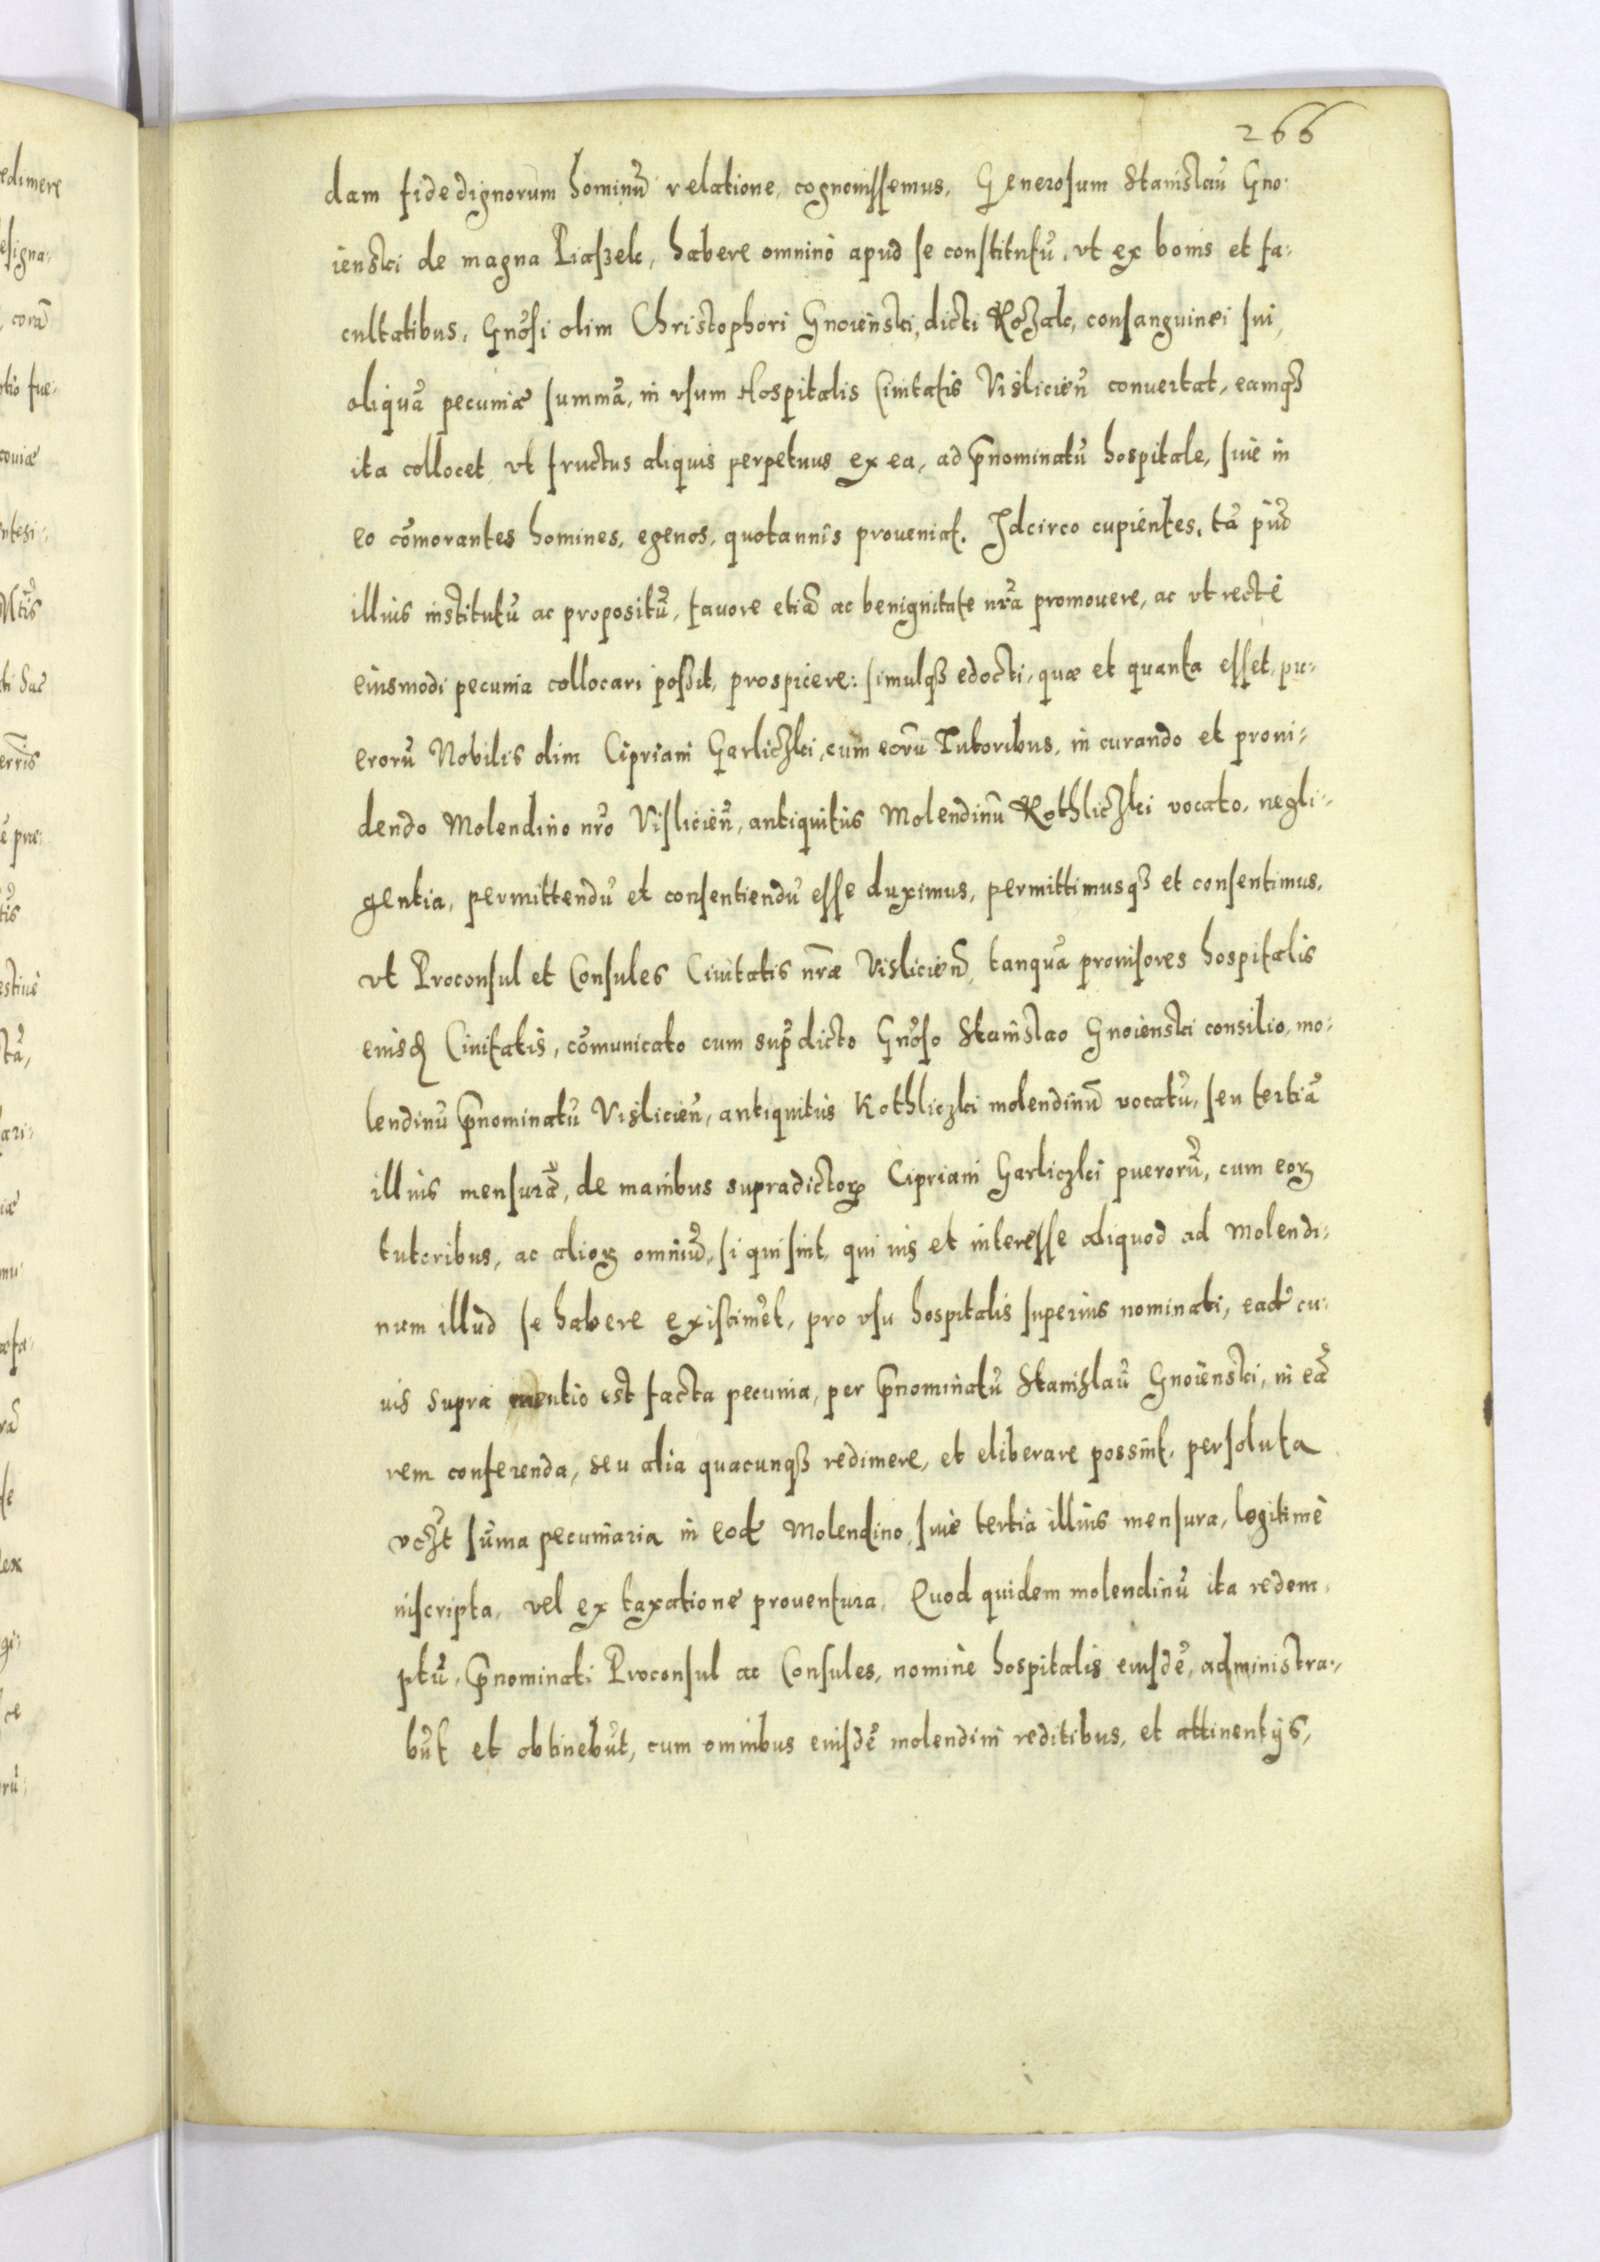 266
dam fide dignorum hominū relatione, cognovissemus, Generosum Stanislaū Gno:
ienski de magna Piaßek, habere omninò apud se constitutū, vt ex bonis et fa:
cultatibus, Gnōsi olim Christophori Gnoienski, dicti Kozak, consanguinei sui,
aliquā pecuniæ summā, in vsum Hospitalis Ciuitatis Visliciēn conuertat, eamq3
ita collocet, vt fructus aliquis perpetuus ex ea, ad p̄nominatū hospitale, siue in
eo cōmorantes homines, egenos, quotannis proueniat. Idcirco cupientes, tā piū
illius institutū ac propositū, fauore etiā ac benignitate nrā promouere, ac vt rectè
eiusmodi pecunia collocari poßit, prospicere: simulq3 edocti, quæ et quanta esset, pu:
erorū Nobilis olim Cipriani Garliczki, cum eorū Tutoribus, in curando et proui:
dendo Molendino nrō Visliciēn, antiquitùs Molendinū Kothliczki vocato, negli:
gentia, permittendū et consentiendū esse duximus, permittimusq3 et consentimus,
vt Proconsul et Consules Ciuitatis nræ Visliciēn, tanquā prouisores hospitalis
eiusd Ciuitatis, cōmunicato cum sup̄dicto Gnōso Stanislao Gnoienski consilio, mo:
lendinū p̄nominatū Visliciēn, antiquitùs Kothliczki molendinū vocatū, seu tertiā
illius mensurā, de manibus supradictoꝝ Cipriani Garliczki puerorū, cum eoꝝ
tutoribus, ac alioꝝ omniū, si qui sint, qui ius et interesse aliquod ad Molendi:
num illud se habere existimēt, pro vsu hospitalis superius nominati, eadē cu:
uis supra mentio est facta pecunia, per p̄nominatū Stanislaū Gnoienski, in eā
rem conferenda, seu alia quacunq3 redimere, et eliberare possint, persoluta
vczt sūma pecuniaria in eodē Molendino, siue tertia illius mensura, legitimè
inscripta, vel ex taxatione prouentura. Quod quidem molendinū ita redem:
ptū, p̄nominati Proconsul ac Consules, nomine hospitalis eiusdē, administra:
būt et obtinebūt, cum omnibus eiusdē molendini reditibus, et attinentijs,